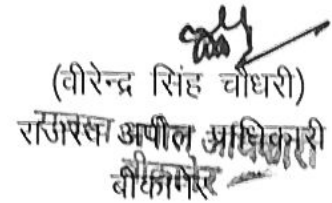 (वीरेन्द्र सिंह चौधरी)
राजस्व अपील अधिकारी
बीकानेर